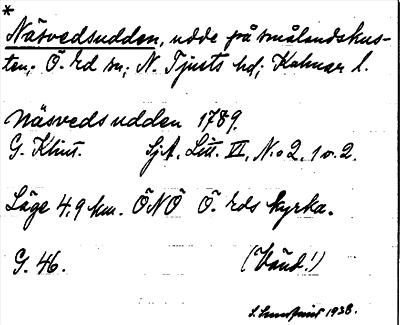 *
Näsvedsudden, udde på smålandskus-
ten; Ö. Ed sn; N. Tjusts hd; Kalmar l.
Näsvedsudden 1789.
G. Klint. Sjk. Litt. III, N:o 2, 1 o. 2.
Läge 4,9 km. ÖNÖ Ö. Eds kyrka.
G. 46. (Vänd!)
S. 1938.